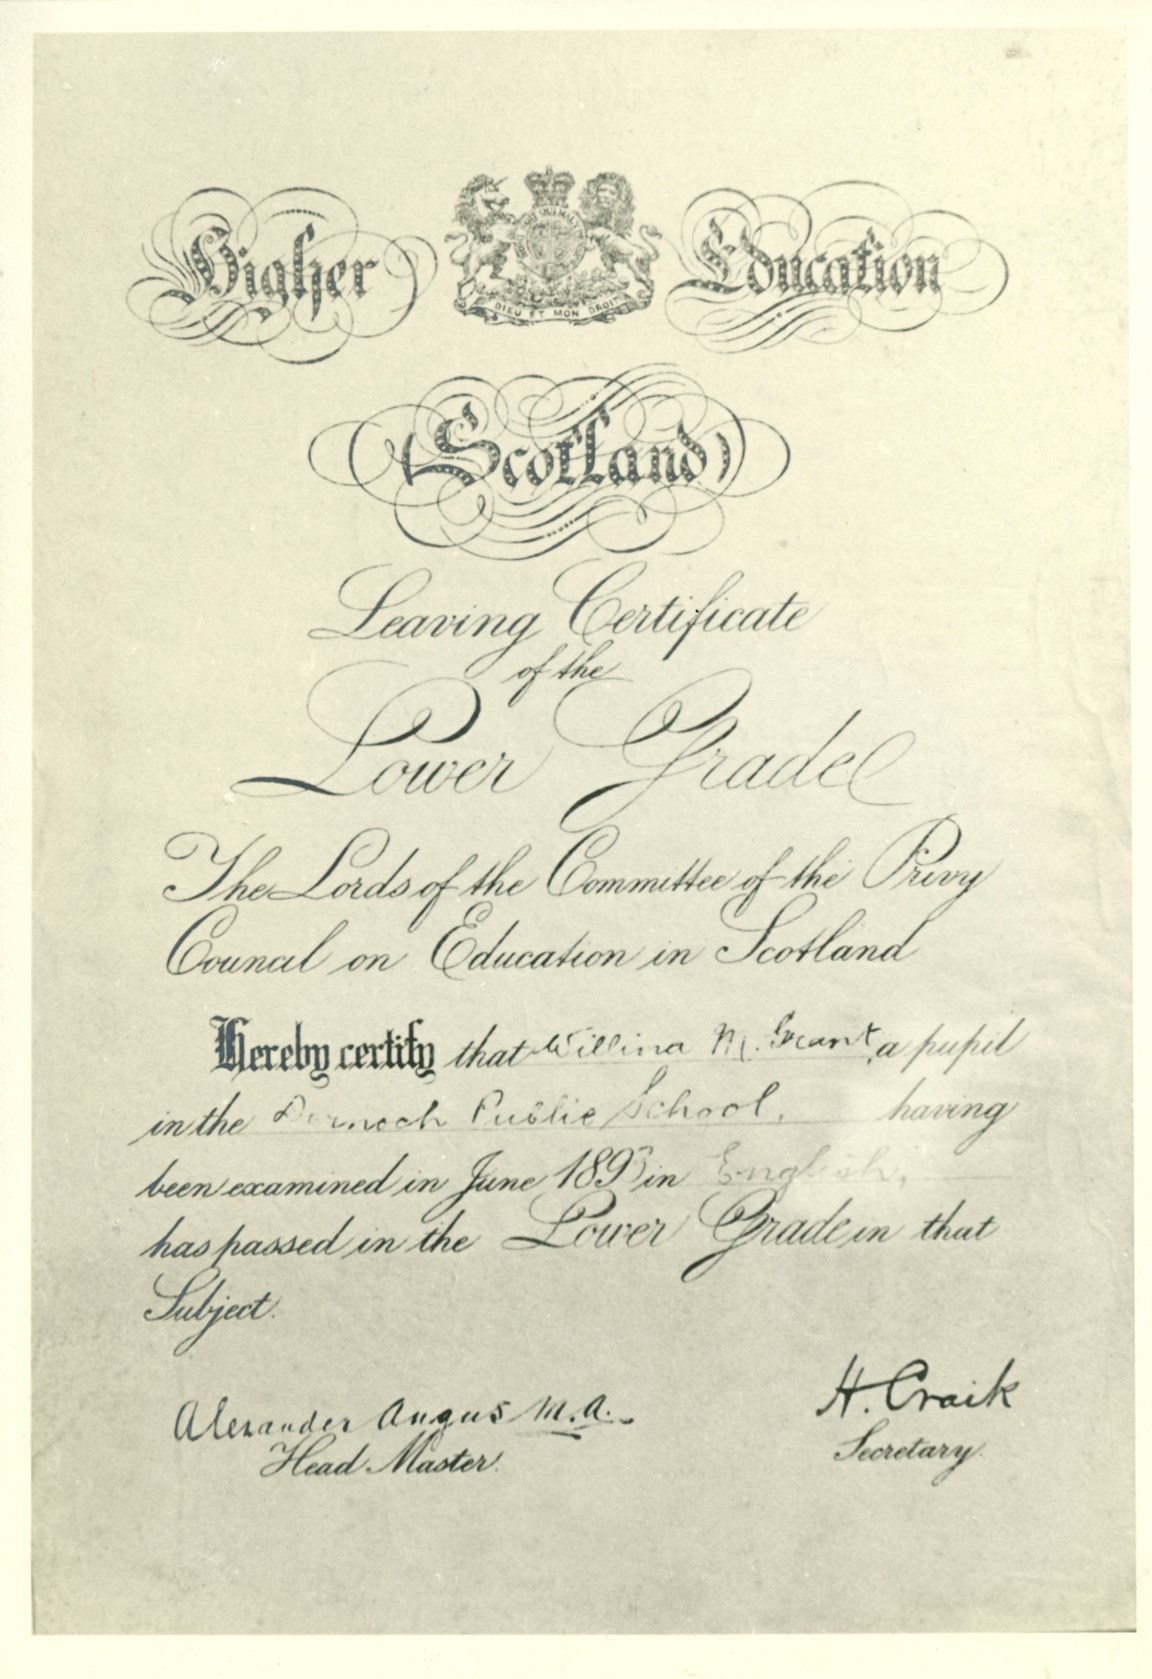 Higher Education
DIEU ET MON DROIT
(Scotland)
Leaving Certificate
of the
Lower Grade
The Lords of the Committee of the Privy
Council on Education in Scotland
Hereby certify that Willina M. Grant, a pupil
in the Dornoch Public School, having
been examined in June 1893 in English,
has passed in the Lower Grade in that
Subject.
Alexander Angus M.A.
Head Master.
H. Craik
Secretary.